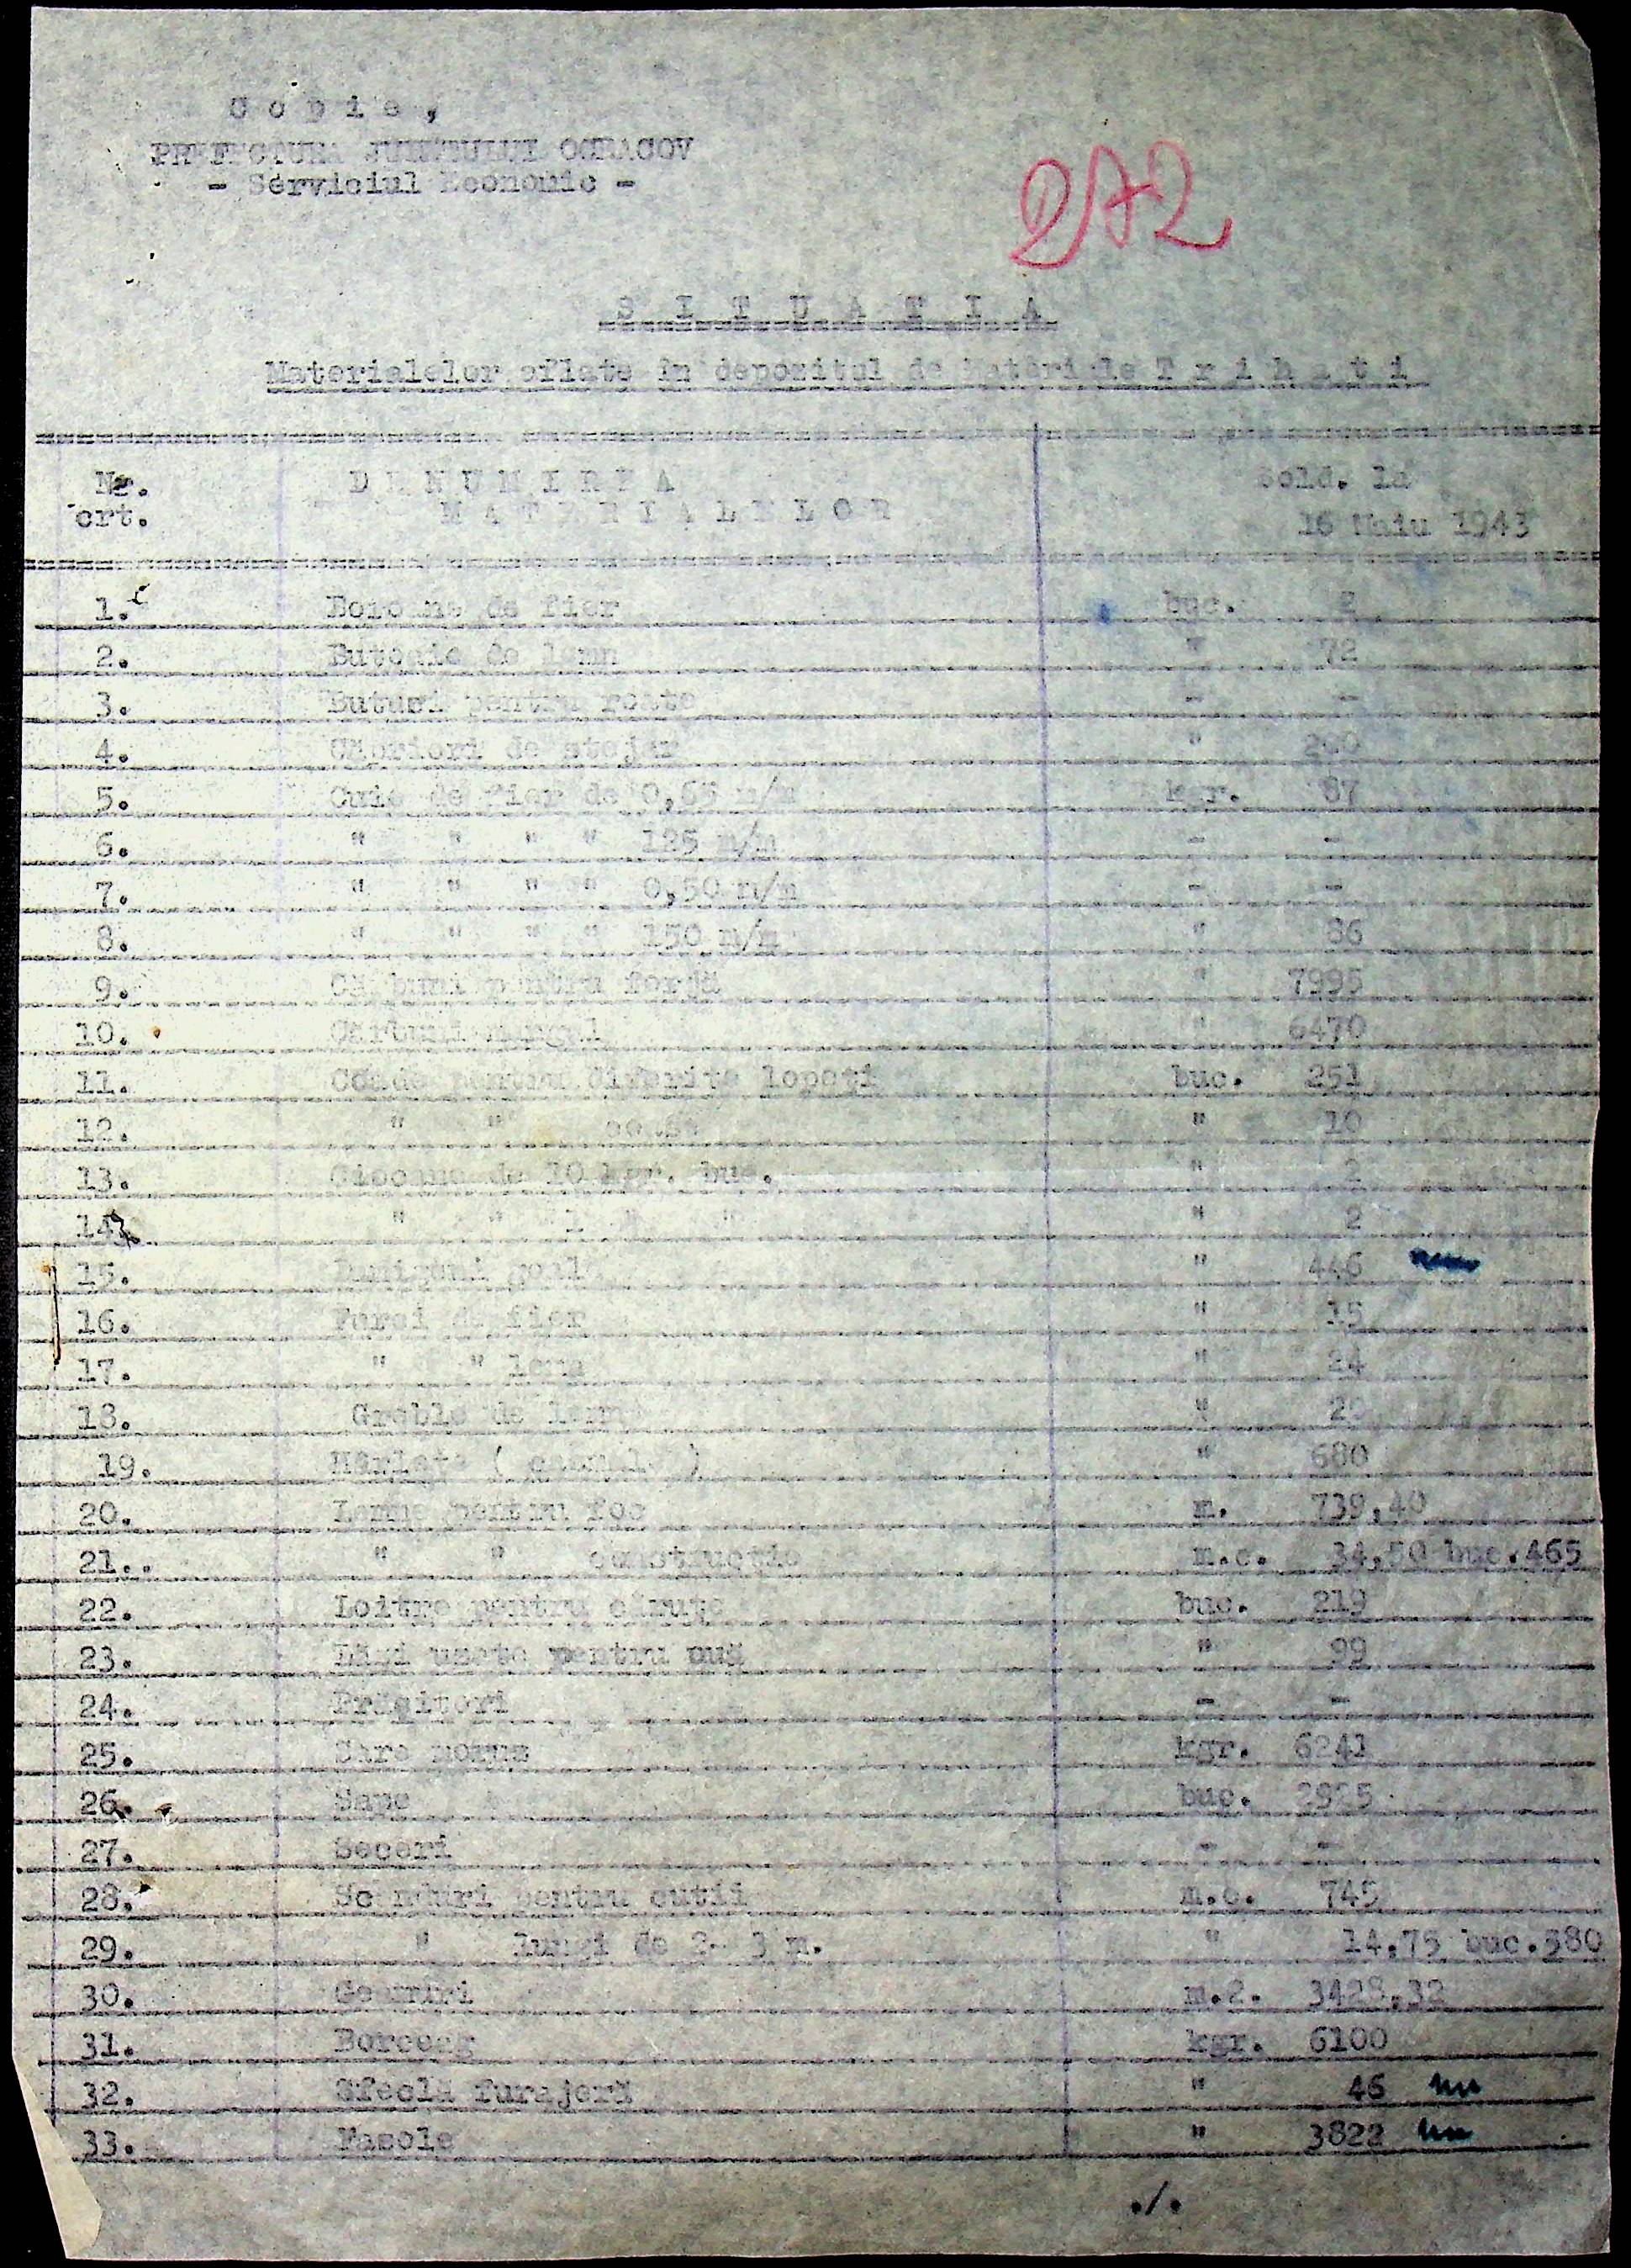 Copie,
PREFECTURA JUDETULUI OCEACOV
- Serviciul Economic -
272
SITUATIA
Materialelor aflate în depozitul de Materiale Trihati
Nr. crt. DENUMIREA MATERIALELOR Sold. la 16 Maiu 1943
1. de fier buc. 2
2. Butoaie de lemn " 72
3. Butuci pentru roate - -
4. Căpriori de stejar "
5. Cuie de fier de kgr. 87
6. " " " " 125 m/m - -
7. " " " " 0,50 m/m - -
8. " " " " 150 m/m "
9. Cărbuni pentru forjă " 7995
10. Cărbuni mangal " 6470
11. Coade pentru diferite lopeți buc. 251
12. " " " 10
13. Ciocane de 10 kgr. buc. " 2
14. " " 1 " " 2
15. goale " 446
16. de fier " 15
17. " " lemn " 24
18. Greble de lemn "
19. Hârlețe ( ) " 680
20. Lemne pentru foc m. 739,40
21.. " " construcție m.c. 34,50 buc.465
22. Loitre pentru căruțe buc. 219
23. uzate pentru " 99
24. Prășitori - -
25. Sare kgr. 6241
26. Sape buc.
27. Seceri - -
28. Scânduri pentru cutii m.c. 745
29. " lungi de 2- 3 m. " 14,75 buc.380
30. Geamuri m.2. 3428,32
31. Borceag kgr. 6100
32. Sfeclă furajeră " 46
33. Fasole " 3822
./.